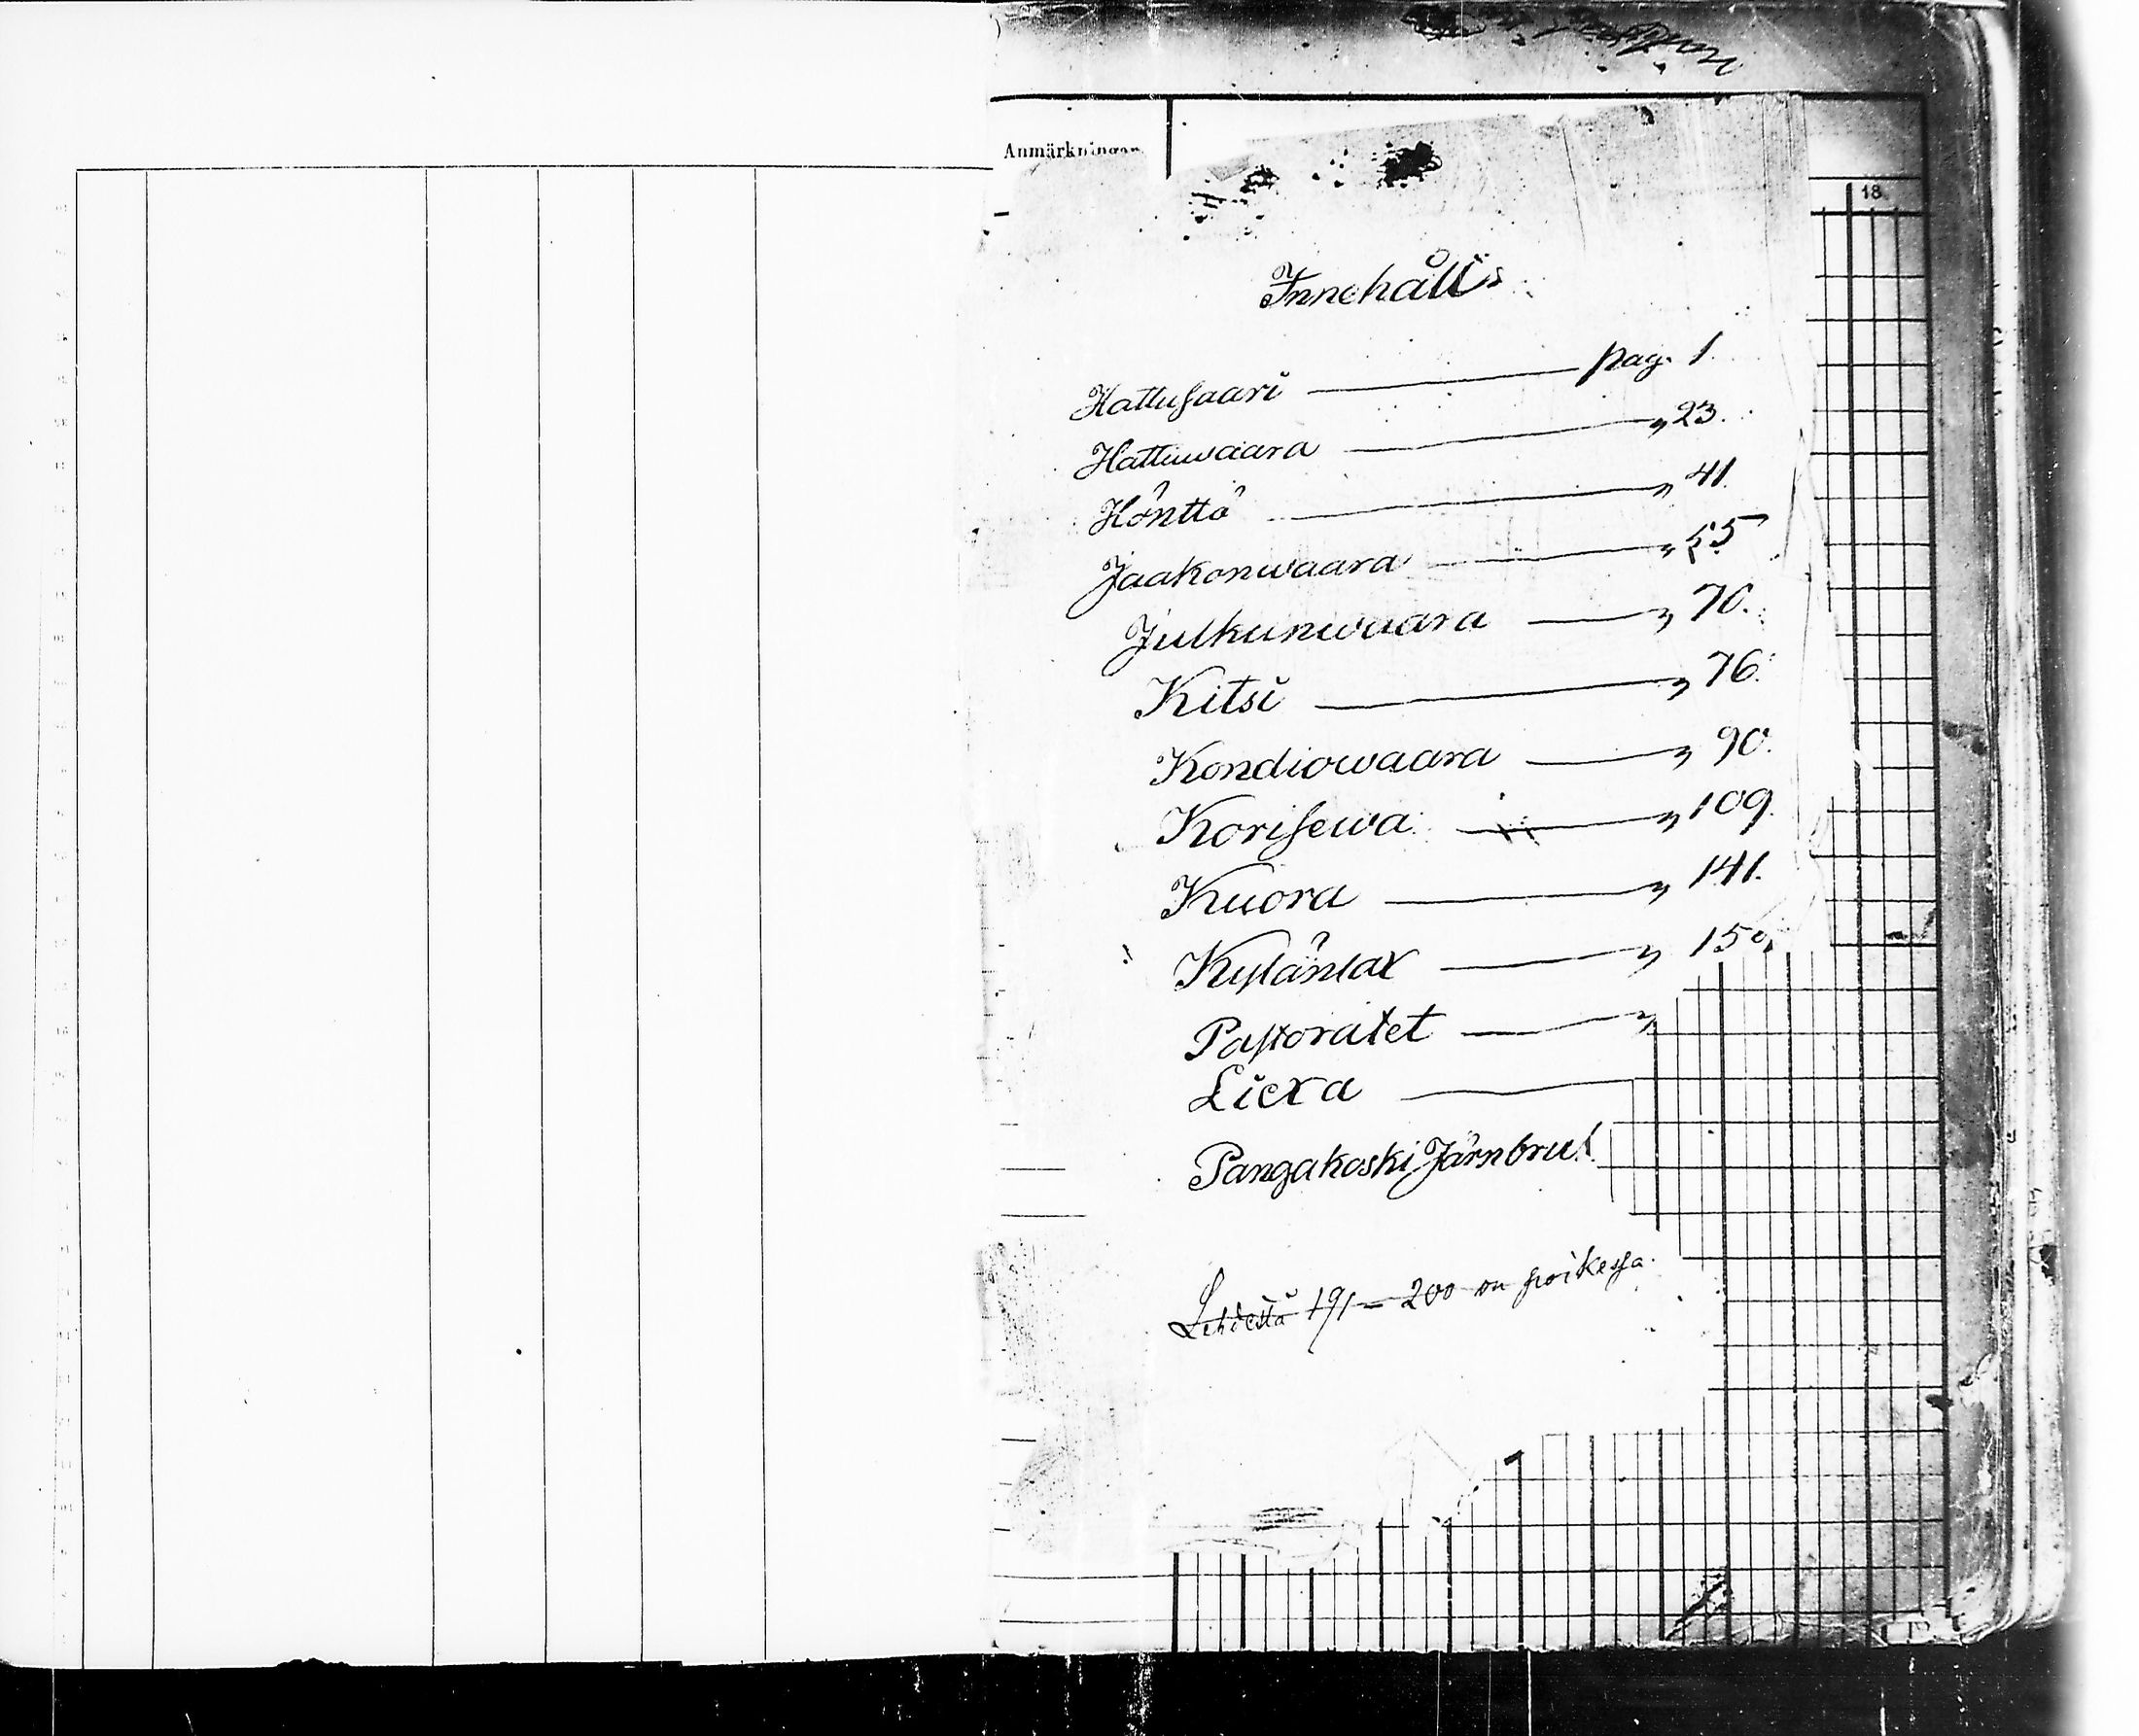 Anmärkningar
18
Innehålls
Hattusaari — pag. 1.
Hattuwaara — „ 23.
Hönttö — „ 41.
Jaakonwaara — „ 55
Julkunwaara — „ 70.
Kitsi — „ 76.
Kondiowaara — „ 90.
Korisewa — „ 109.
Kuora — „ 141.
Kylänlax — „ 150
Pastoratet — „
Liexa —
Pangakoski Järnbruk
Lehdestä 191 — 200 on poikessa.